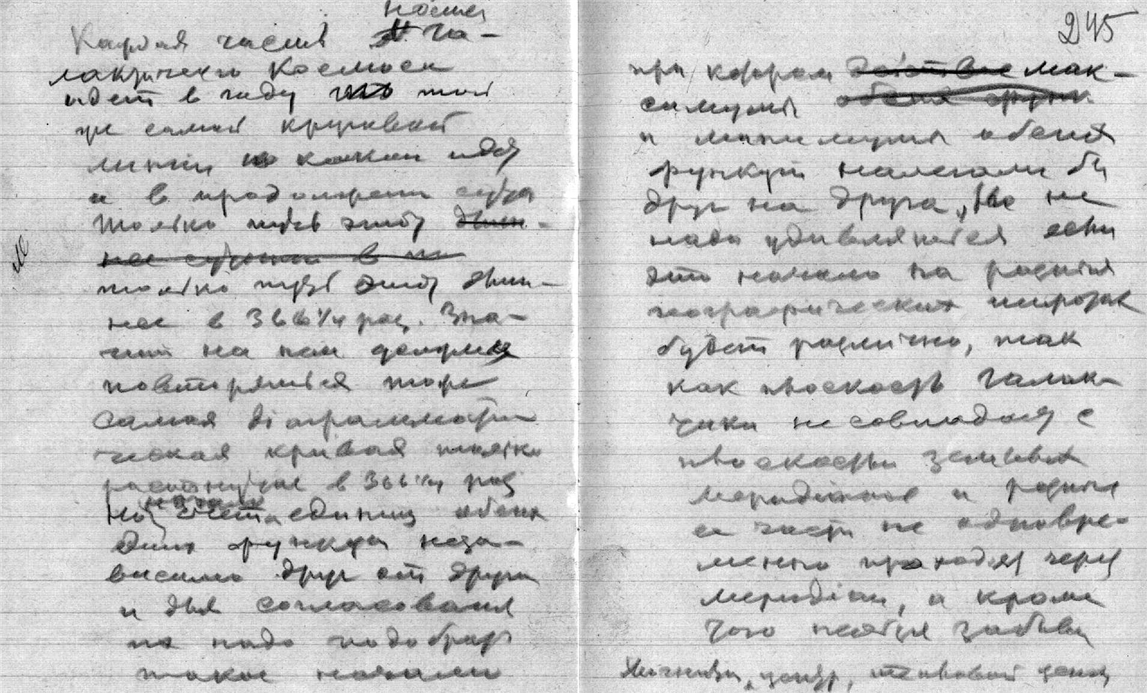 нашего
Каждая часть Га-
лактического Космоса
идет в году той
же самой кривой
линии по какой идет
и в продолжении суток
только путь этот
только путь этот длин-
нее в 366¼ раз. Зна-
чит на нем должна
повторяться та же
самая діаграммати-
ческая кривая только
растянутая в 366¼ раз
начало
Но счета единиц обеих
этих функций неза-
висимо друг от друга
и для согласования
их надо подобрать
такое начало
245
при котором мак-
симумы
и минимумы обеих
функций налегали бы
друг на друга, но не
надо удивляться если
это начало на разных
географических широтах
будет различно, так
как плоскость Галак-
тики не совпадает с
плоскостью земных
меридіанов и разные
ее части не одновре-
менно проходят через
меридіан, а кроме
того нельзя забыть
центр,